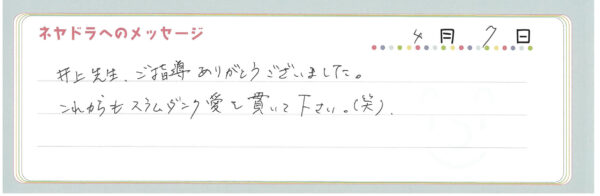 ネヤドラへのメッセージ
4月7日
井上先生、ご指導ありがとうございました。
これからもスラムダンク愛を貫いて下さい。(笑).